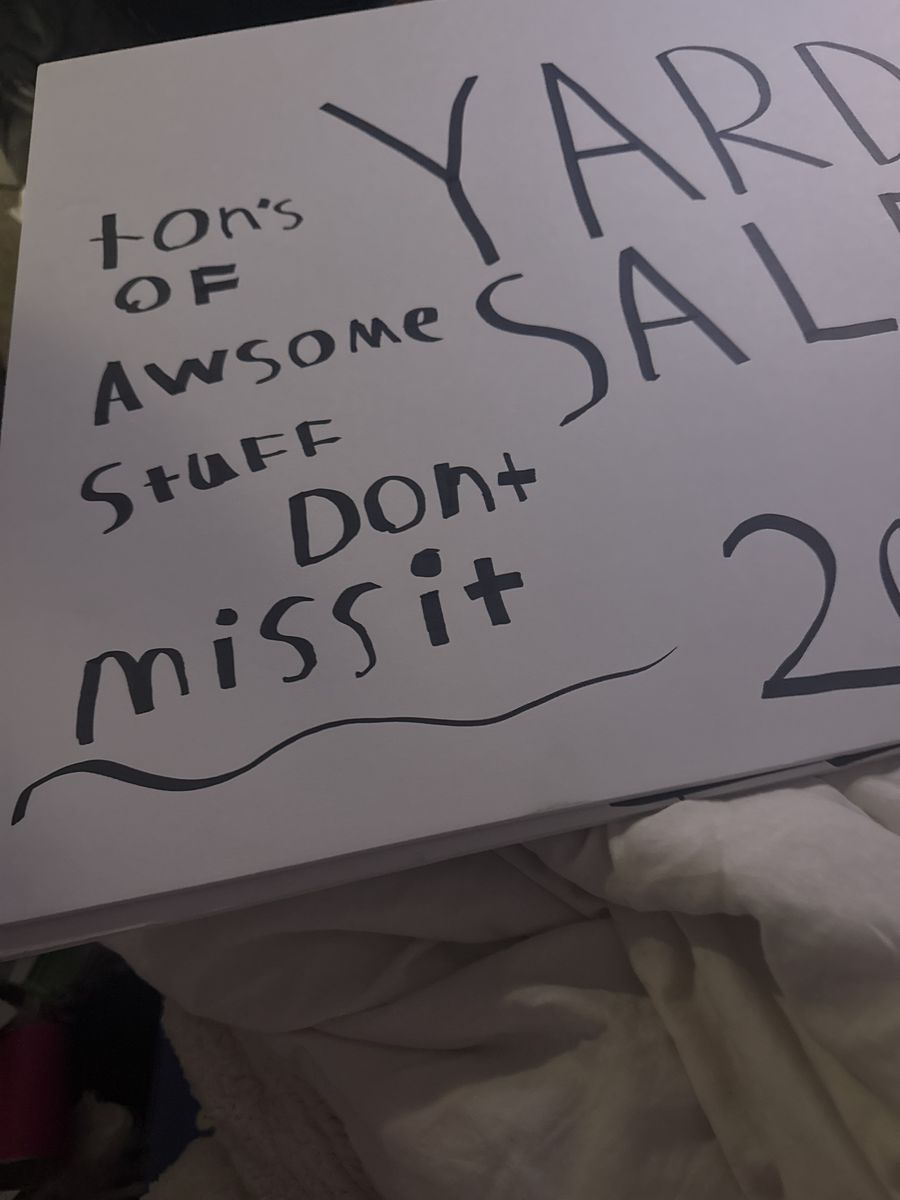 YARD
SAL
ton's
OF
Awsome
Stuff
Dont
miss it
2